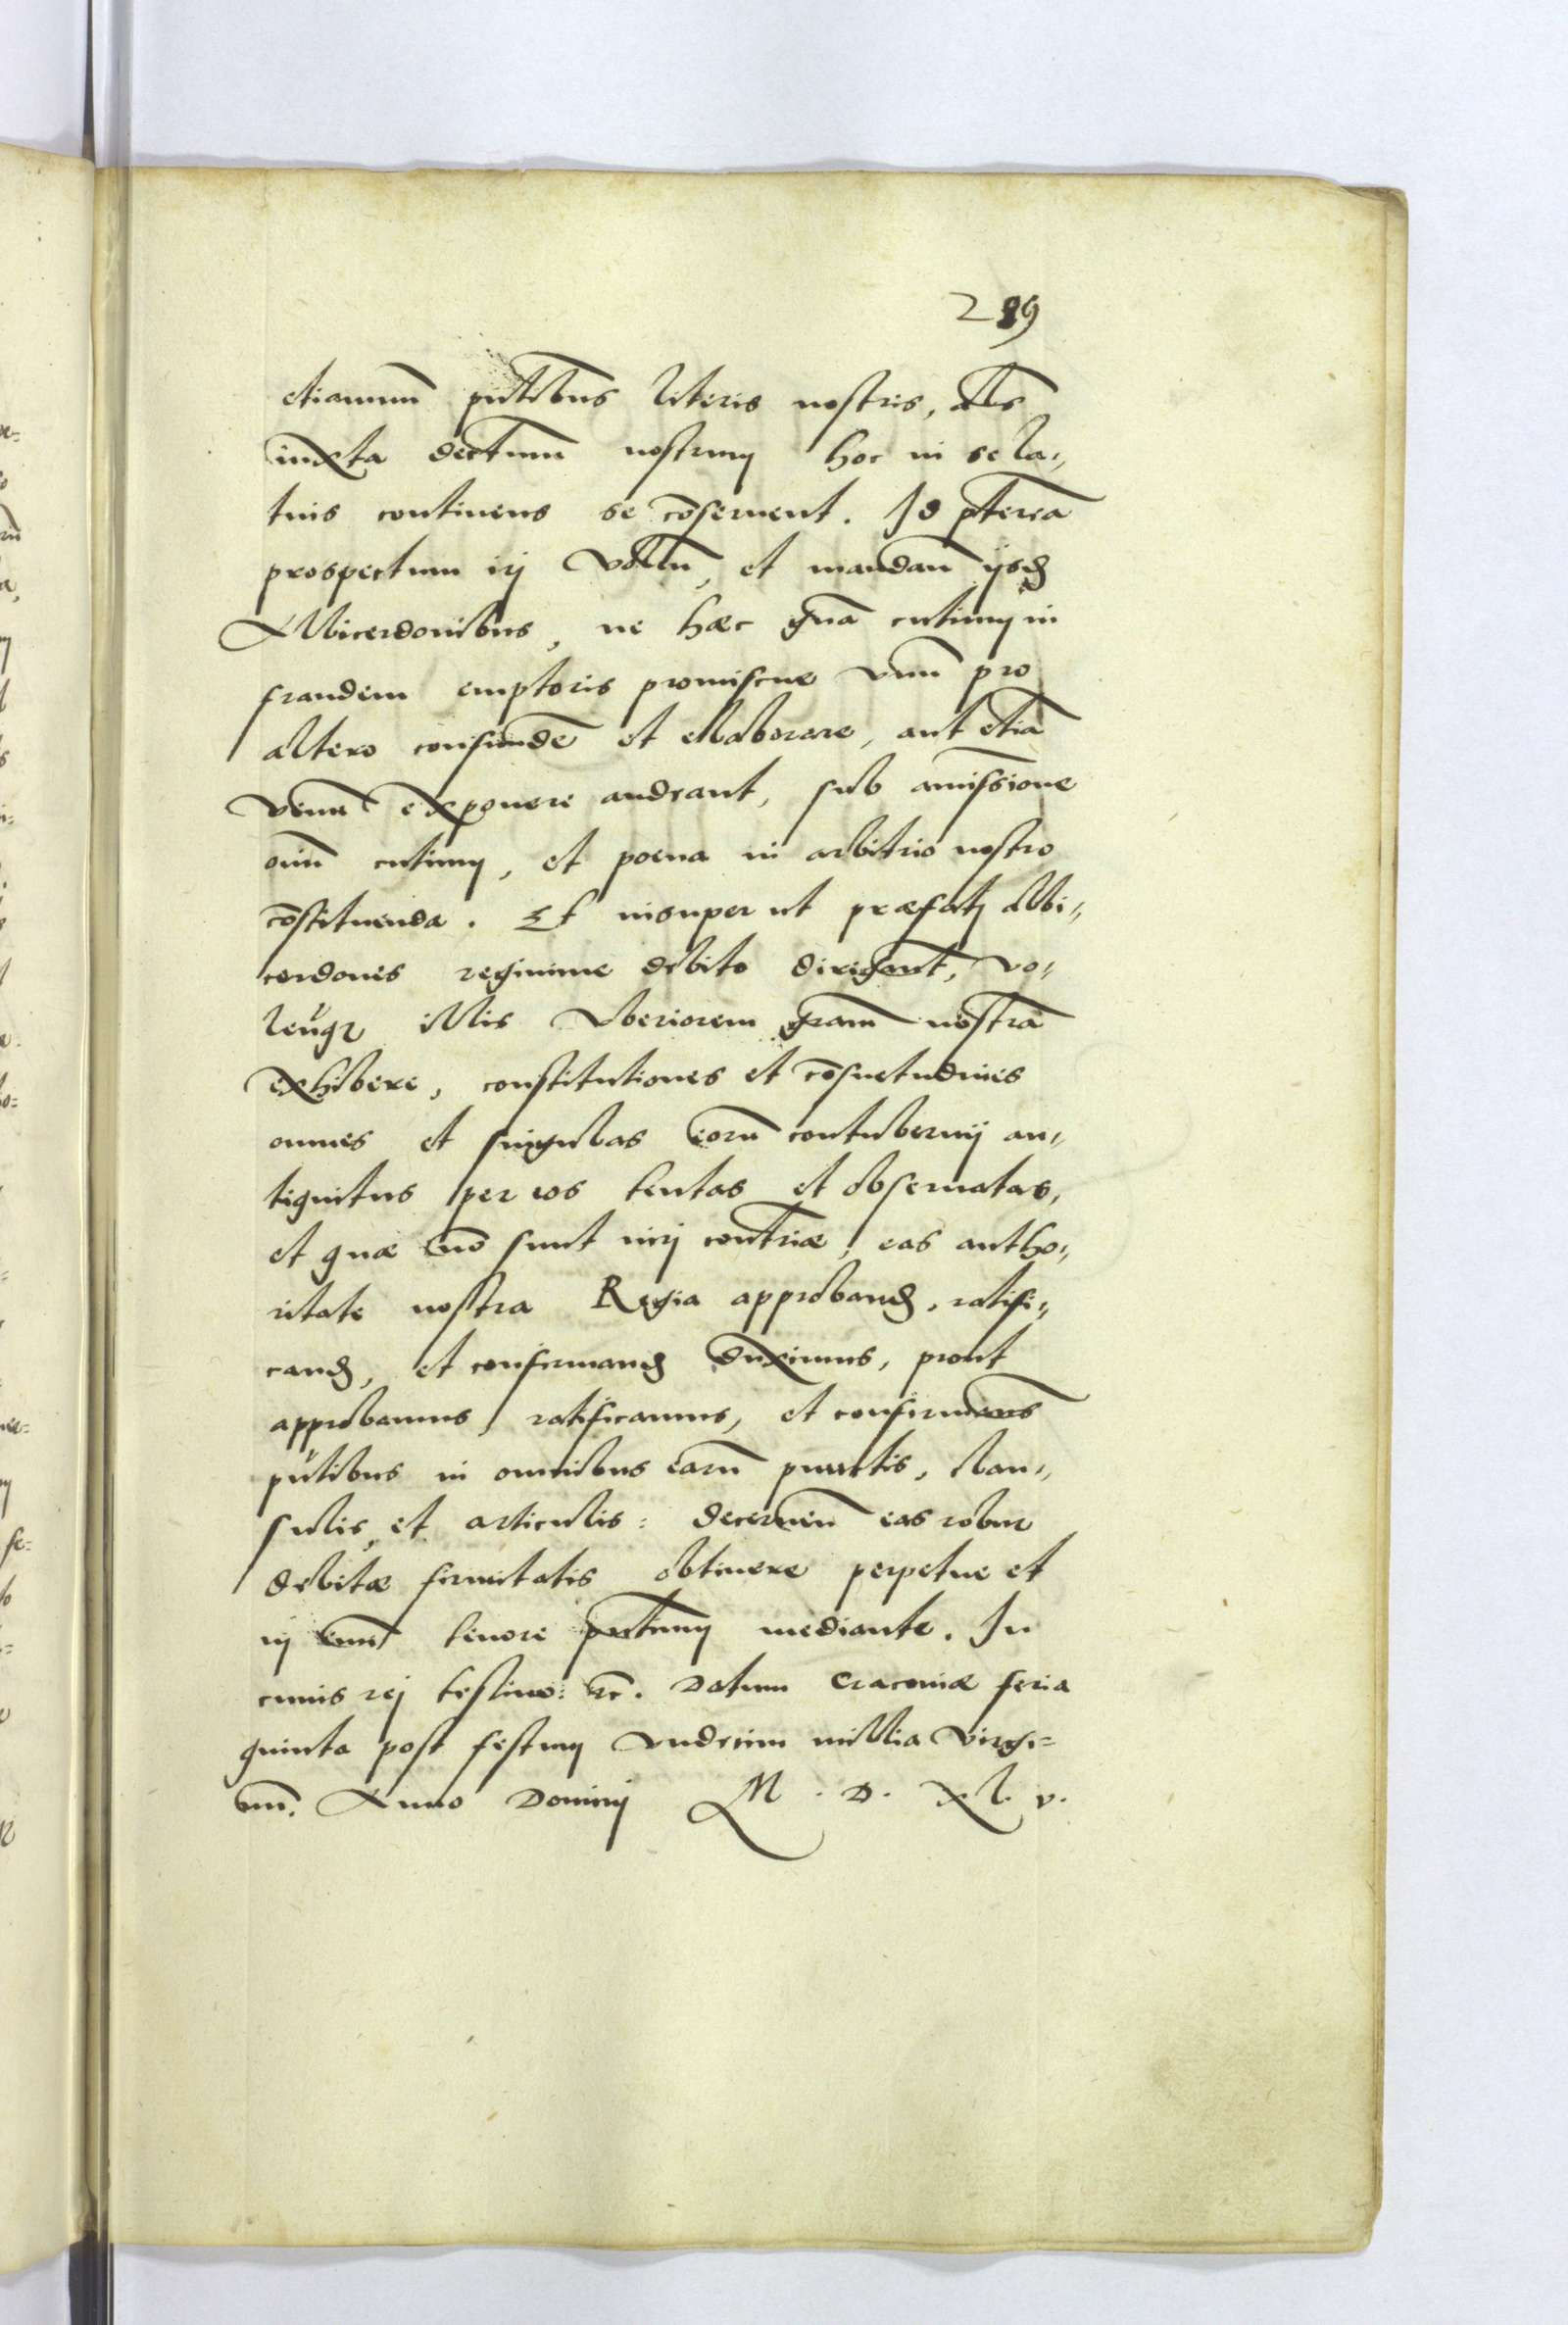 289
etiamnū pn̄tibus literis nostris, als
iuxta dectum̄ nostrum hoc in se la⸗
tius continens se cōseruent. Id pterea
prospectum iri volum̄, et mandam̄ ijsd
Albicerdonibus, ne hæc gn̄a cutium in
fraudem emptoris promiscue vnū pro
altero confundē et ellaborare, aut etiā
venū exponere audeant, sub amissione
oim̄ cutium, et poena in arbitrio nostro
cōstituenda. Et insuper ut præfati Albi⸗
cerdones regimine debito dirigant, vo⸗
len̄qz illis vberiorem gram̄ nostrā
exhibere, constitutiones et cōsuetudines
omnes et singulas eorū contubernij an⸗
tiquitus per eos tentas et obseruatas,
et quæ nō sunt iuri contriæ, eas autho⸗
ritate nostra Regia approband, ratifi⸗
cand, et confirmand duximus, prout
approbamus, ratificamus, et confirmams
pn̄tibus in omnibus earū punctis, clau⸗
sulis, et articulis: decernen̄ eas robur
debitæ firmitatis obtinere perpetue et
in æuū tenore pn̄tium mediante. In
cuius rei testimo: rc̄. Datum Cracouiæ feria
quinta post festum vndecim millia virgi⸗
nū. Anno Domini M. D. xl. v.